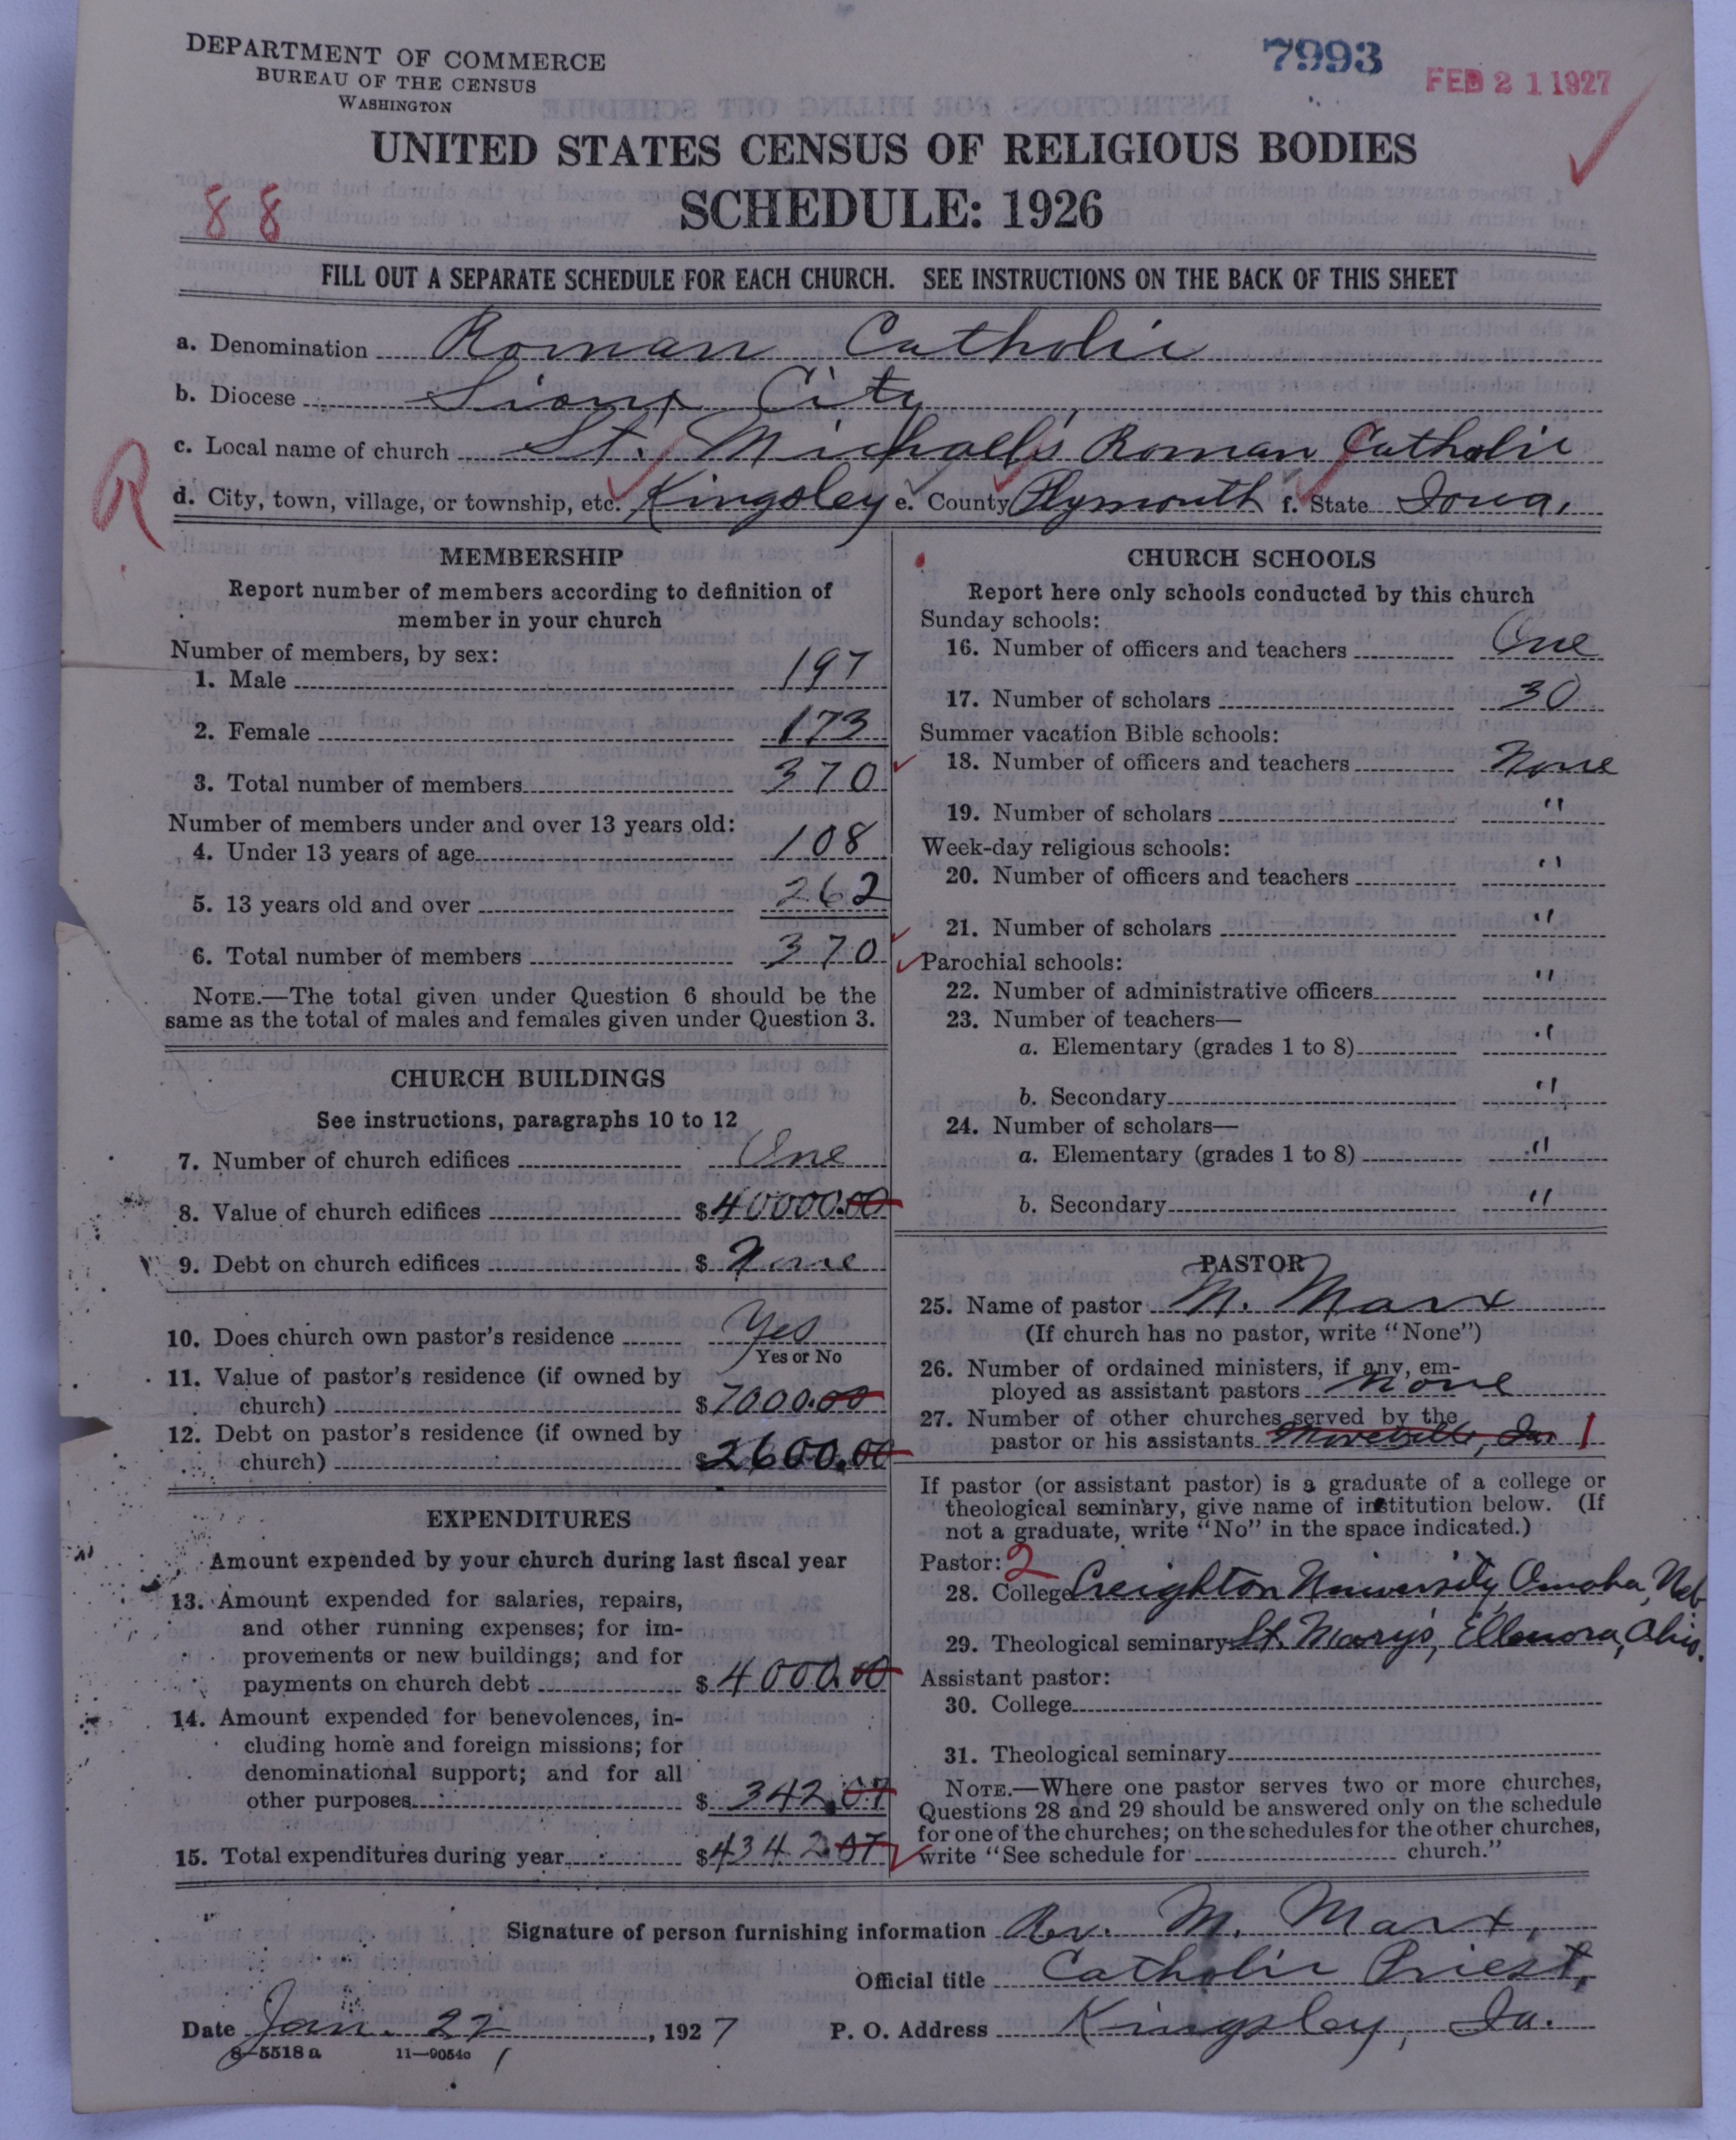 DEPARTMENT OF COMMERCE
BUREAU OF THE CENSUS
WASHINGTON
7993
FEB 21 1927
UNITED STATES CENSUS OF RELIGIOUS BODIES
SCHEDULE: 1926
88
FILL OUT A SEPARATE SCHEDULE FOR EACH CHURCH. SEE INSTRUCTIONS ON THE BACK OF THIS SHEET
a. Denomination Roman Catholic
b. Diocese Sioux City
c. Local name of church St. Michael's Roman Catholic
R
d. City, town, village, or township, etc. Kingsley e. County Plymouth f. State Iowa.
MEMBERSHIP
Report number of members according to definition of
member in your church
Number of members, by sex:
1. Male 197
2. Female 173
3. Total number of members 370
Number of members under and over 13 years old:
4. Under 13 years of age 108
5. 13 years old and over 262
6. Total number of members 370
NOTE.—The total given under Question 6 should be the
same as the total of males and females given under Question 3.
CHURCH BUILDINGS
See instructions, paragraphs 10 to 12
7. Number of church edifices One
8. Value of church edifices $40000.00
9. Debt on church edifices $ None
10. Does church own pastor's residence Yes
Yes or No
11. Value of pastor's residence (if owned by
church) $7000.00
12. Debt on pastor's residence (if owned by
church) $2600.00
EXPENDITURES
Amount expended by your church during last fiscal year
13. Amount expended for salaries, repairs,
and other running expenses; for im-
provements or new buildings; and for
payments on church debt $4000.00
14. Amount expended for benevolences, in-
cluding home and foreign missions; for
denominational support; and for all
other purposes $ 342.07
15. Total expenditures during year $4342.07
CHURCH SCHOOLS
Report here only schools conducted by this church
Sunday schools:
16. Number of officers and teachers One
17. Number of scholars 30
Summer vacation Bible schools:
18. Number of officers and teachers None
19. Number of scholars "
Week-day religious schools:
20. Number of officers and teachers "
21. Number of scholars "
Parochial schools:
22. Number of administrative officers "
23. Number of teachers—
a. Elementary (grades 1 to 8) "
b. Secondary "
24. Number of scholars—
a. Elementary (grades 1 to 8) "
b. Secondary "
PASTOR
25. Name of pastor M. Marx
(If church has no pastor, write "None")
26. Number of ordained ministers, if any, em-
ployed as assistant pastors None
27. Number of other churches served by the
pastor or his assistants Moville, Ia. 1
If pastor (or assistant pastor) is a graduate of a college or
theological seminary, give name of institution below. (If
not a graduate, write "No" in the space indicated.)
Pastor: 2
28. College Creighton University, Omaha, Neb
29. Theological seminary St. Mary's, Ohio.
Assistant pastor:
30. College
31. Theological seminary
NOTE.—Where one pastor serves two or more churches,
Questions 28 and 29 should be answered only on the schedule
for one of the churches; on the schedules for the other churches,
write "See schedule for church."
Signature of person furnishing information Rev. M. Marx,
Official title Catholic Priest,
Date Jan. 22, 1927 P. O. Address Kingsley, Ia.
8—5518 a 11—9054c